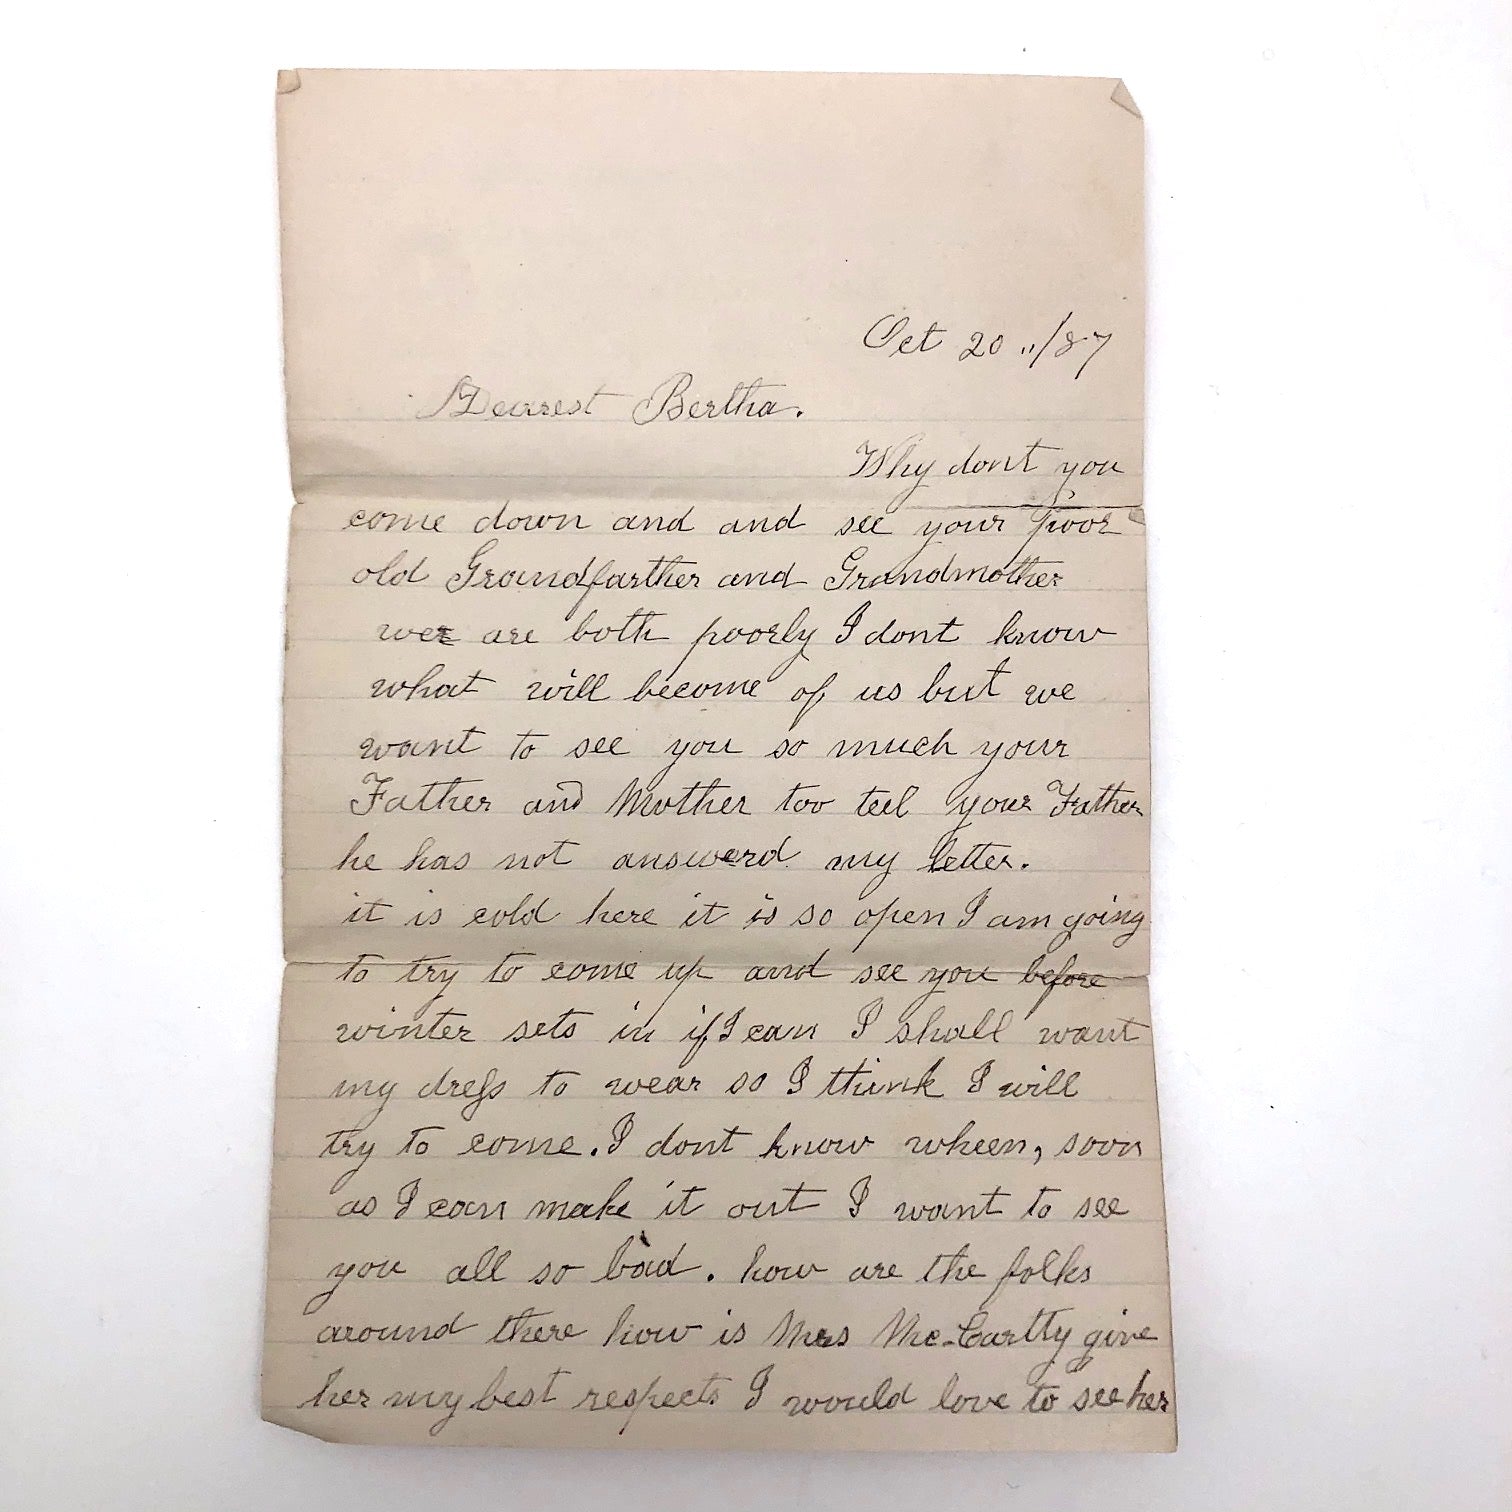 Oct 20 "/87
Dearest Bertha.
Why dont you
come down and and see your poor
old Grandfarther and Grandmother
wee are both poorly I dont know
what will become of us but we
want to see you so much your
Father and Mother too teel your Father
he has not answerd my letter.
it is cold here it is so open I am going
to try to come up and see you before
winter sets in if I can I shall want
my dress to wear so I think I will
try to come. I dont know wheen, soon
as I can make it out I want to see
you all so bad. how are the folks
around there how is Mrs Mc-Cartty give
her my best respects I would love to see her